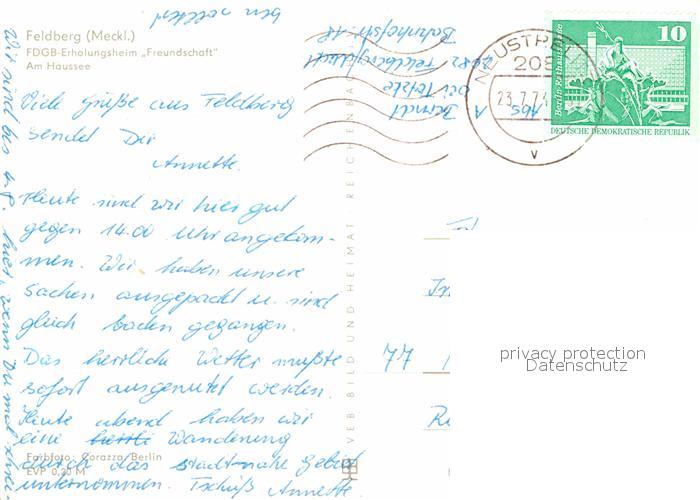 Feldberg (Meckl.)
FDGB-Erholungsheim „Freundschaft"
Am Haussee
Viele Grüße aus Feldberg
sendet Dir
Annette.
Heute sind wir hier gut
gegen 14.00 Uhr angekom-
men. Wir haben unsere
Sachen ausgepackt u. sind
gleich baden gegangen.
Das herrliche Wetter mußte
sofort ausgenutzt werden.
Heute abend haben wir
eine Wanderung
durch das stadtnahe Gebiet
unternommen. Tschüß Annette
Farbfoto: Corazza, Berlin
EVP 0,20 M
Wir sind bis 4.8. hier, wenn Du mal
Abs. A.
Berndt
bei
2082 Feldberg
Bahnhofstr. 18
VEB BILD UND HEIMAT REICHENBACH
NEUSTREL
208
23.7.7
10
Berlin Rathausstrasse
DEUTSCHE DEMOKRATISCHE REPUBLIK
77
privacy protection
Datenschutz